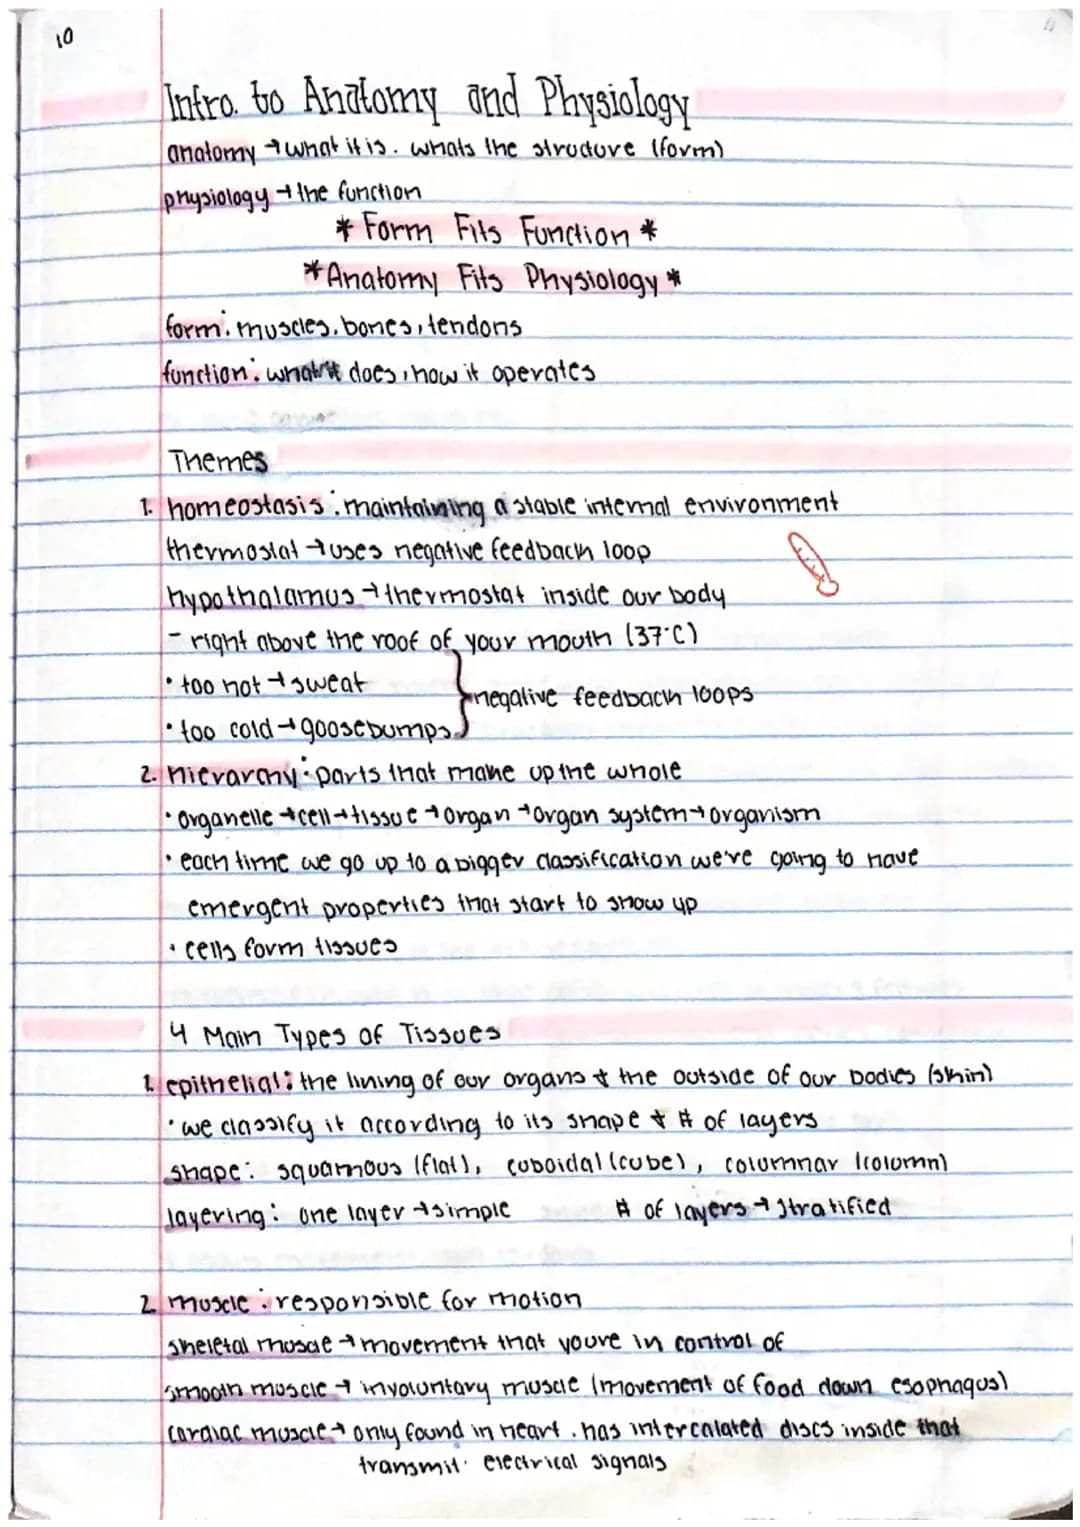 10
Intro. to Anatomy and Physiology
anatomy → what it is. whats the structure (form)
physiology → the function
* Form Fits Function *
* Anatomy Fits Physiology *
form: muscles, bones, tendons
function: what it does, how it operates
Themes
1. homeostasis: maintaining a stable internal environment
thermostat → uses negative feedback loop
hypothalamus → thermostat inside our body
- right above the roof of your mouth (37°C)
• too hot → sweat
negative feedback loops
• too cold → goosebumps
2. hierarchy: parts that make up the whole
• organelle → cell → tissue → organ → organ system → organism
• each time we go up to a bigger classification we're going to have
emergent properties that start to show up
• cells form tissues
4 Main Types of Tissues
1. epithelial: the lining of our organs & the outside of our bodies (skin)
• we classify it according to its shape & # of layers
shape: squamous (flat), cuboidal (cube), columnar (column)
layering: one layer → simple # of layers → stratified
2. muscle: responsible for motion
skeletal muscle → movement that youre in control of
smooth muscle → involuntary muscle (movement of food down esophagus)
cardiac muscle → only found in heart. has intercalated discs inside that
transmit electrical signals